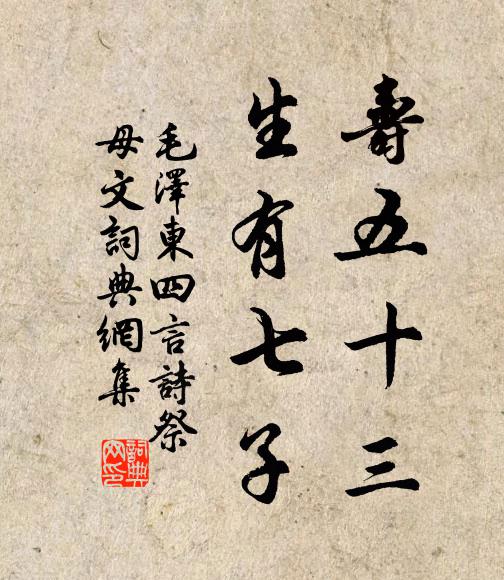 壽五十三
生有七子
毛澤東四言詩祭
母文詞典網集
詞典
网印